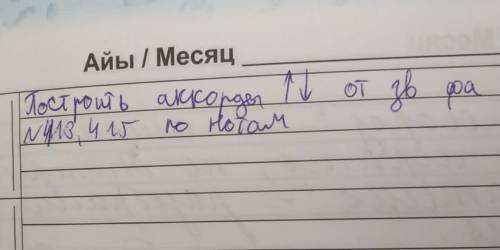 Айы / Месяц
Построить аккорды ↑↓ от зв фа
№413, 415 по нотам